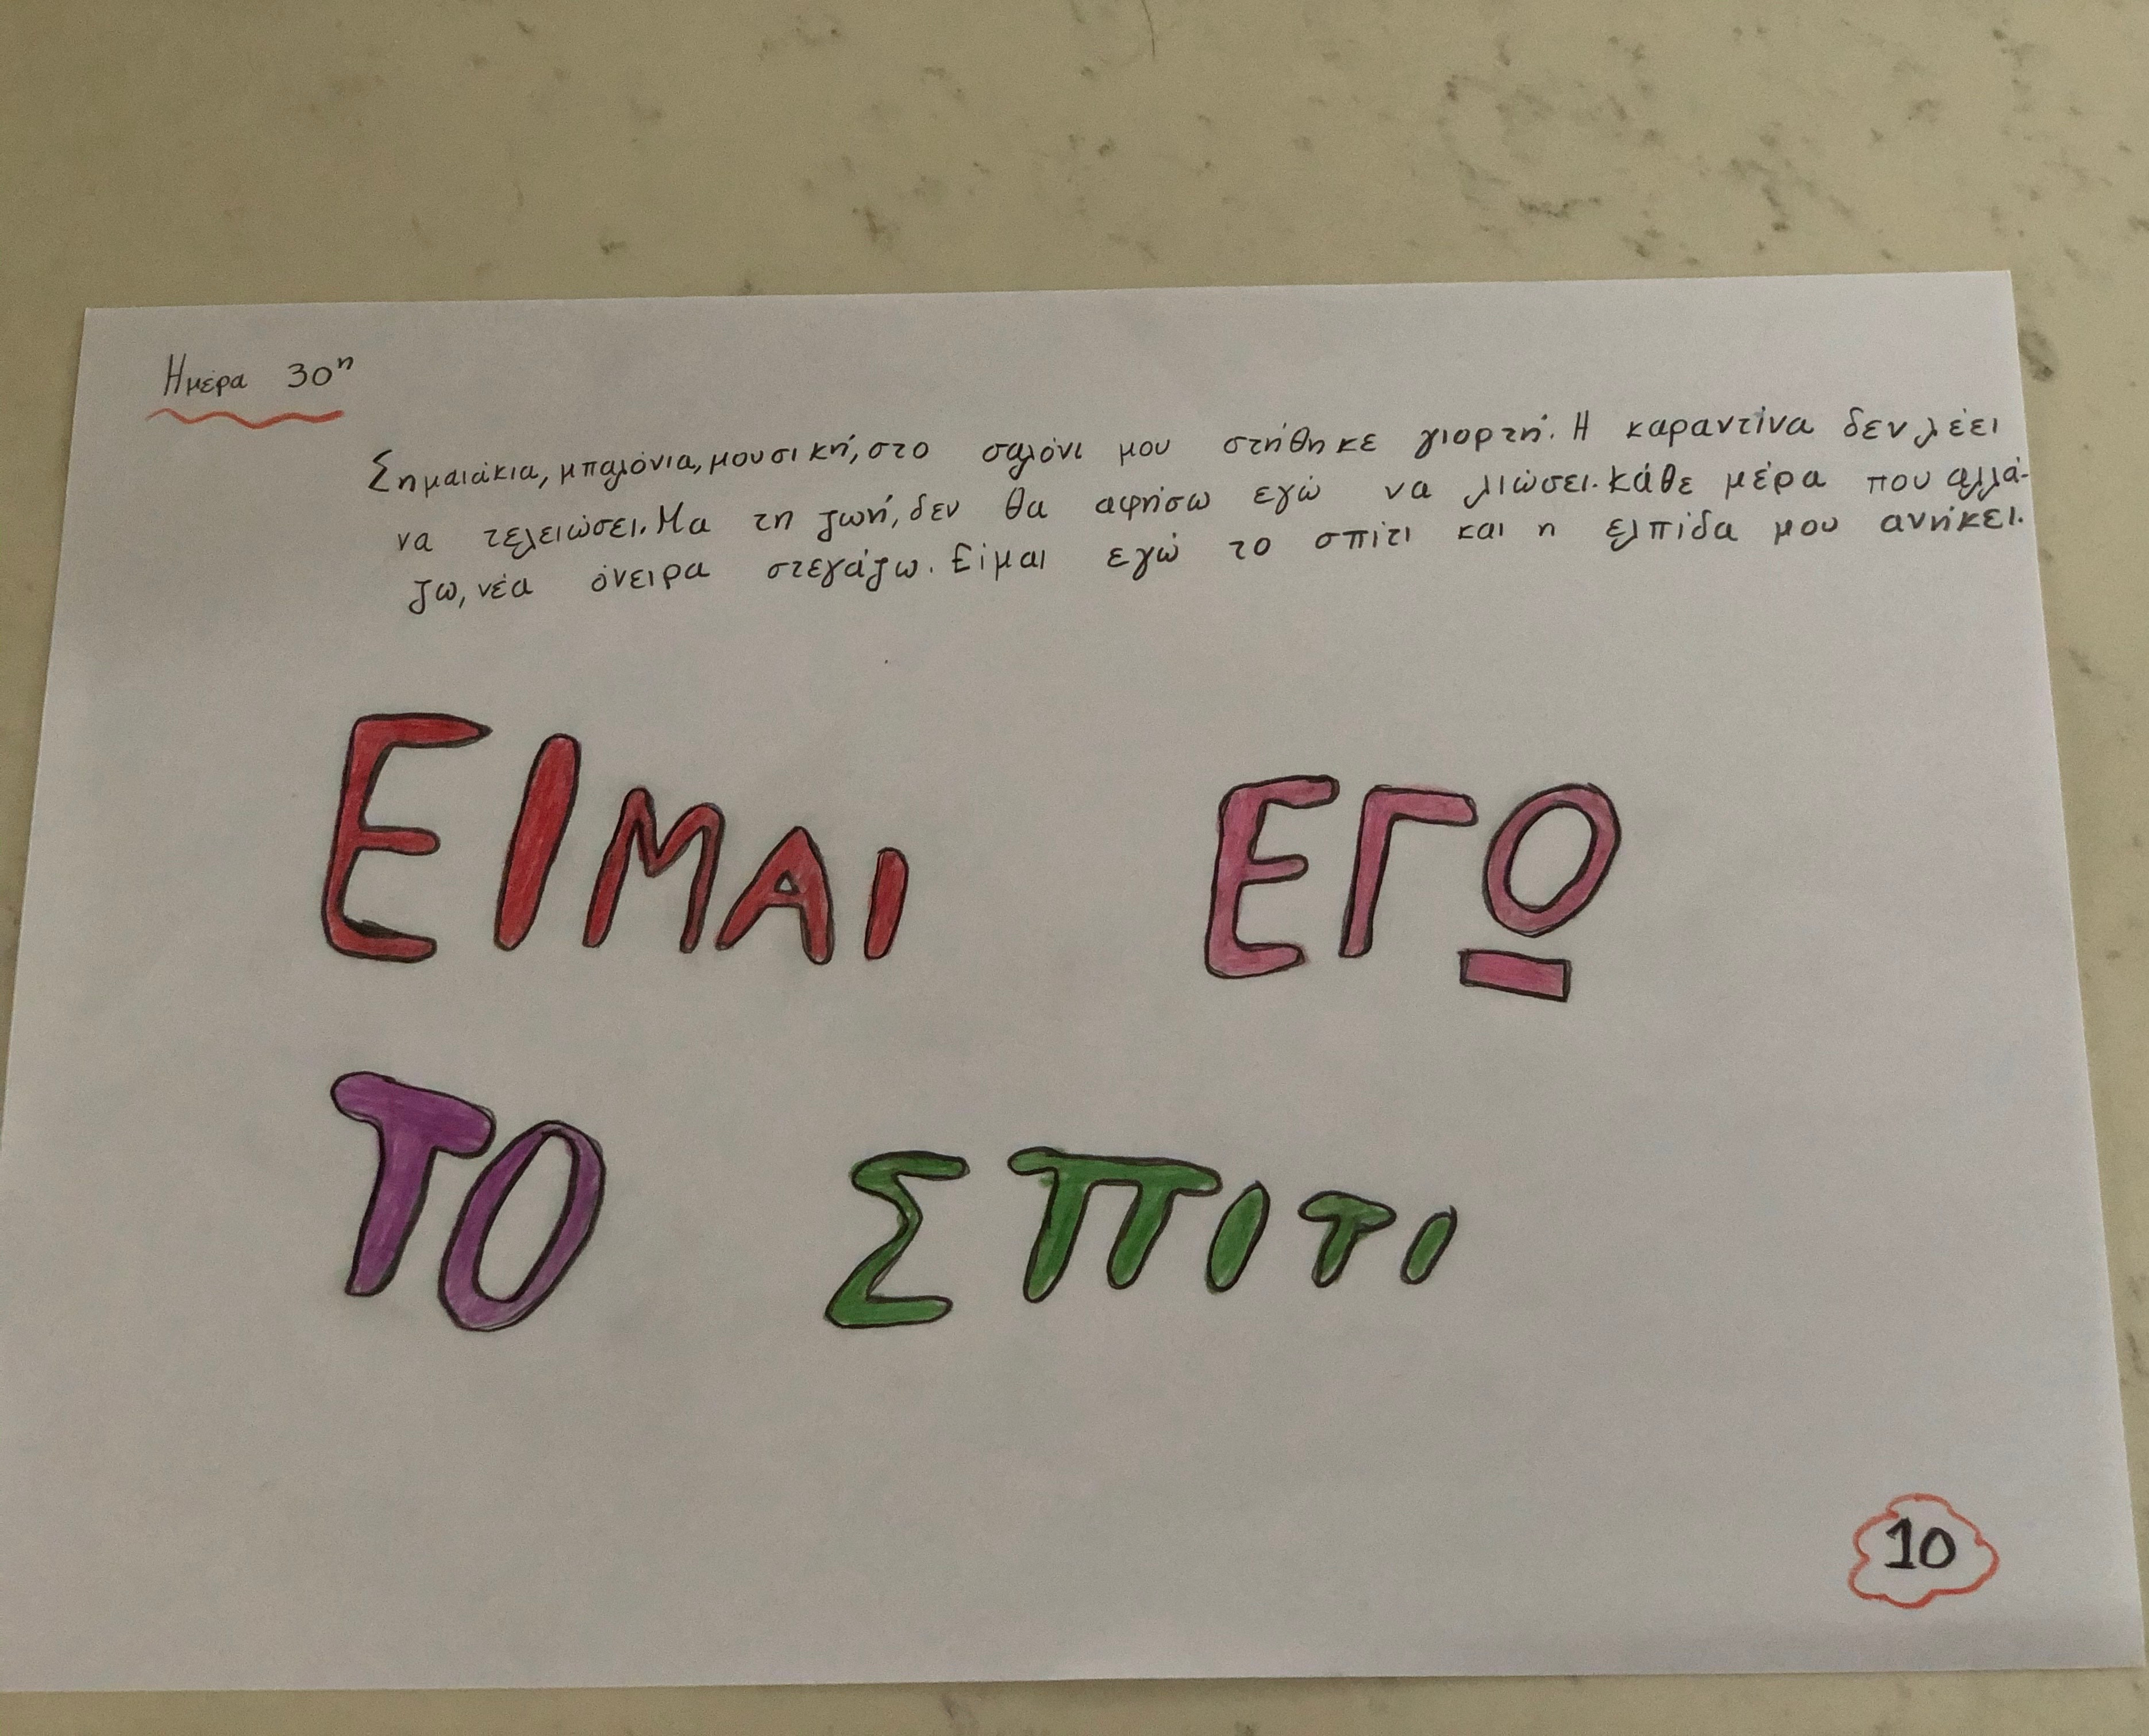 Ημέρα 30η
Σημαιάκια, μπαλόνια, μουσική, στο σαλόνι μου στήθηκε γιορτή. Η καραντίνα δεν λέει
να τελειώσει. Μα τη ζωή, δεν θα αφήσω εγώ να λιώσει. Κάθε μέρα που αλλά-
ζω, νέα όνειρα στεγάζω. Είμαι εγώ το σπίτι και η ελπίδα μου ανήκει.
ΕΙΜΑΙ ΕΓΩ
ΤΟ ΣΠΙΤΙ
10